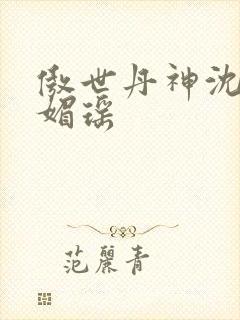 傲世丹神沈
媚瑶
范丽青